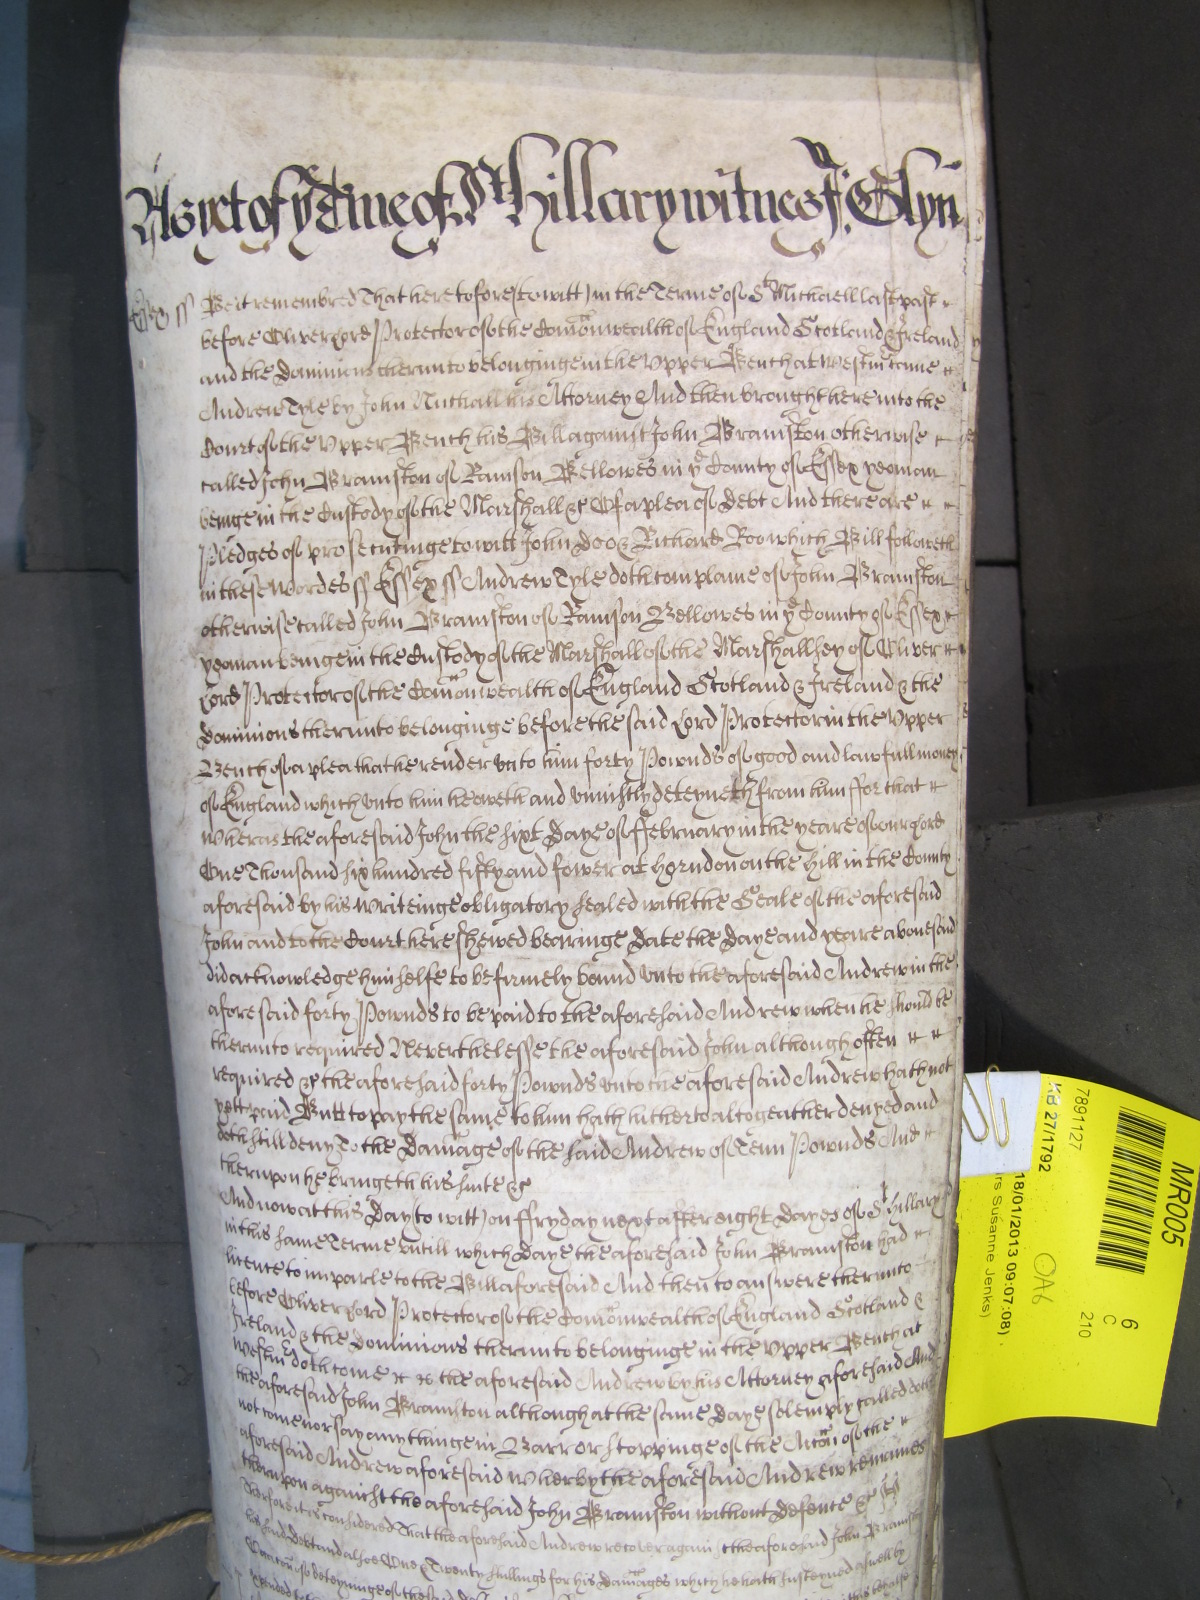 As yet of ye Tme of St Hillary witnes J: Glyn
Essex ss Be it remembred That heretofore (to witt) in the Terme of St Michaell last past
before Oliver Lord Protector of the Comonwealth of England Scotland & Ireland
and the dominions therunto belonginge in the Upper Bench at Westmr came
Andrew Tyle by John Nuthall his Attorney And then brought here into the
Court of the Upper Bench his Bill against John Bramston otherwise
called John Bramston of Ramson Bellowes in ye County of Essex yeoman
beinge in the Custody of the Marshall &c Of a plea of debt And there are
Pledges of prosecutinge to witt John Doo & Richard Roo which Bill followeth
in these wordes ss Essex ss Andrew Tyle doth complaine of John Bramston
otherwise called John Bramston of Ramson Bellowes in ye County of Essex
yeoman beinge in the Custody of the Marshall of the Marshallsey of Oliver
Lord Protector of the Comonwealth of England Scotland & Ireland & the
dominions therunto belonginge before the said Lord Protector in the Upper
Bench of a plea that he render unto him forty Pownds of good and lawfull money
of England which unto him he oweth and uniustly deteyneth from him ffor that
wheras the aforesaid John the sixt Daye of ffebruary in the yeare of our Lord
One Thousand six hundred fifty and fower at Horndon on the Hill in the County
aforesaid by his writeinge obligatory sealed with the Seale of the aforesaid
John and to the Court here shewed bearinge Date the Daye and yeare abovesaid
did acknowledge himselfe to be firmely bound unto the aforesaid Andrew in the
aforesaid forty Pownds to be paid to the aforesaid Andrew when he should be
therunto required Neverthelesse the aforesaid John although often
required &c the aforesaid forty Pownds unto the aforesaid Andrew hath not
yett paid Butt to pay the same to him hath hitherto altogeather denyed and
doth still deny To the Damage of the said Andrew of Tenn Pownds And
therupon he bringeth his suite &c
And now at this Day (to witt) on ffryday next after eight Dayes of St Hillary
in this same Terme untill which Daye the aforesaid John Bramston had
licence to imparle to the Bill aforesaid And then to answere therunto
before Oliver Lord Protector of the Comonwealth of England Scotland &
Ireland & the Dominions therunto belonginge in the Upper Bench at
Westmr doth come the aforesaid Andrew by his Attorney aforesaid And
the aforesaid John Bramston although at the same Daye solemply called doth
not come nor say any thinge in Barr or stoppinge of the Accon of the
aforesaid Andrew aforesaid Wherby the aforesaid Andrew remaines
therupon against the aforesaid John Bramston without defence &c
Therfore it is considered That the aforesaid Andrew recover against the aforesaid John Bramston
his said Debt and alsoe One & Twenty shillings for his Damages which he hath susteyned aswell by
Occacon of deteyninge of the said
MR005
6
C
210
OA6
7891127
KB 27/1792
18/01/2013 09:07:08)
rs Susanne Jenks)